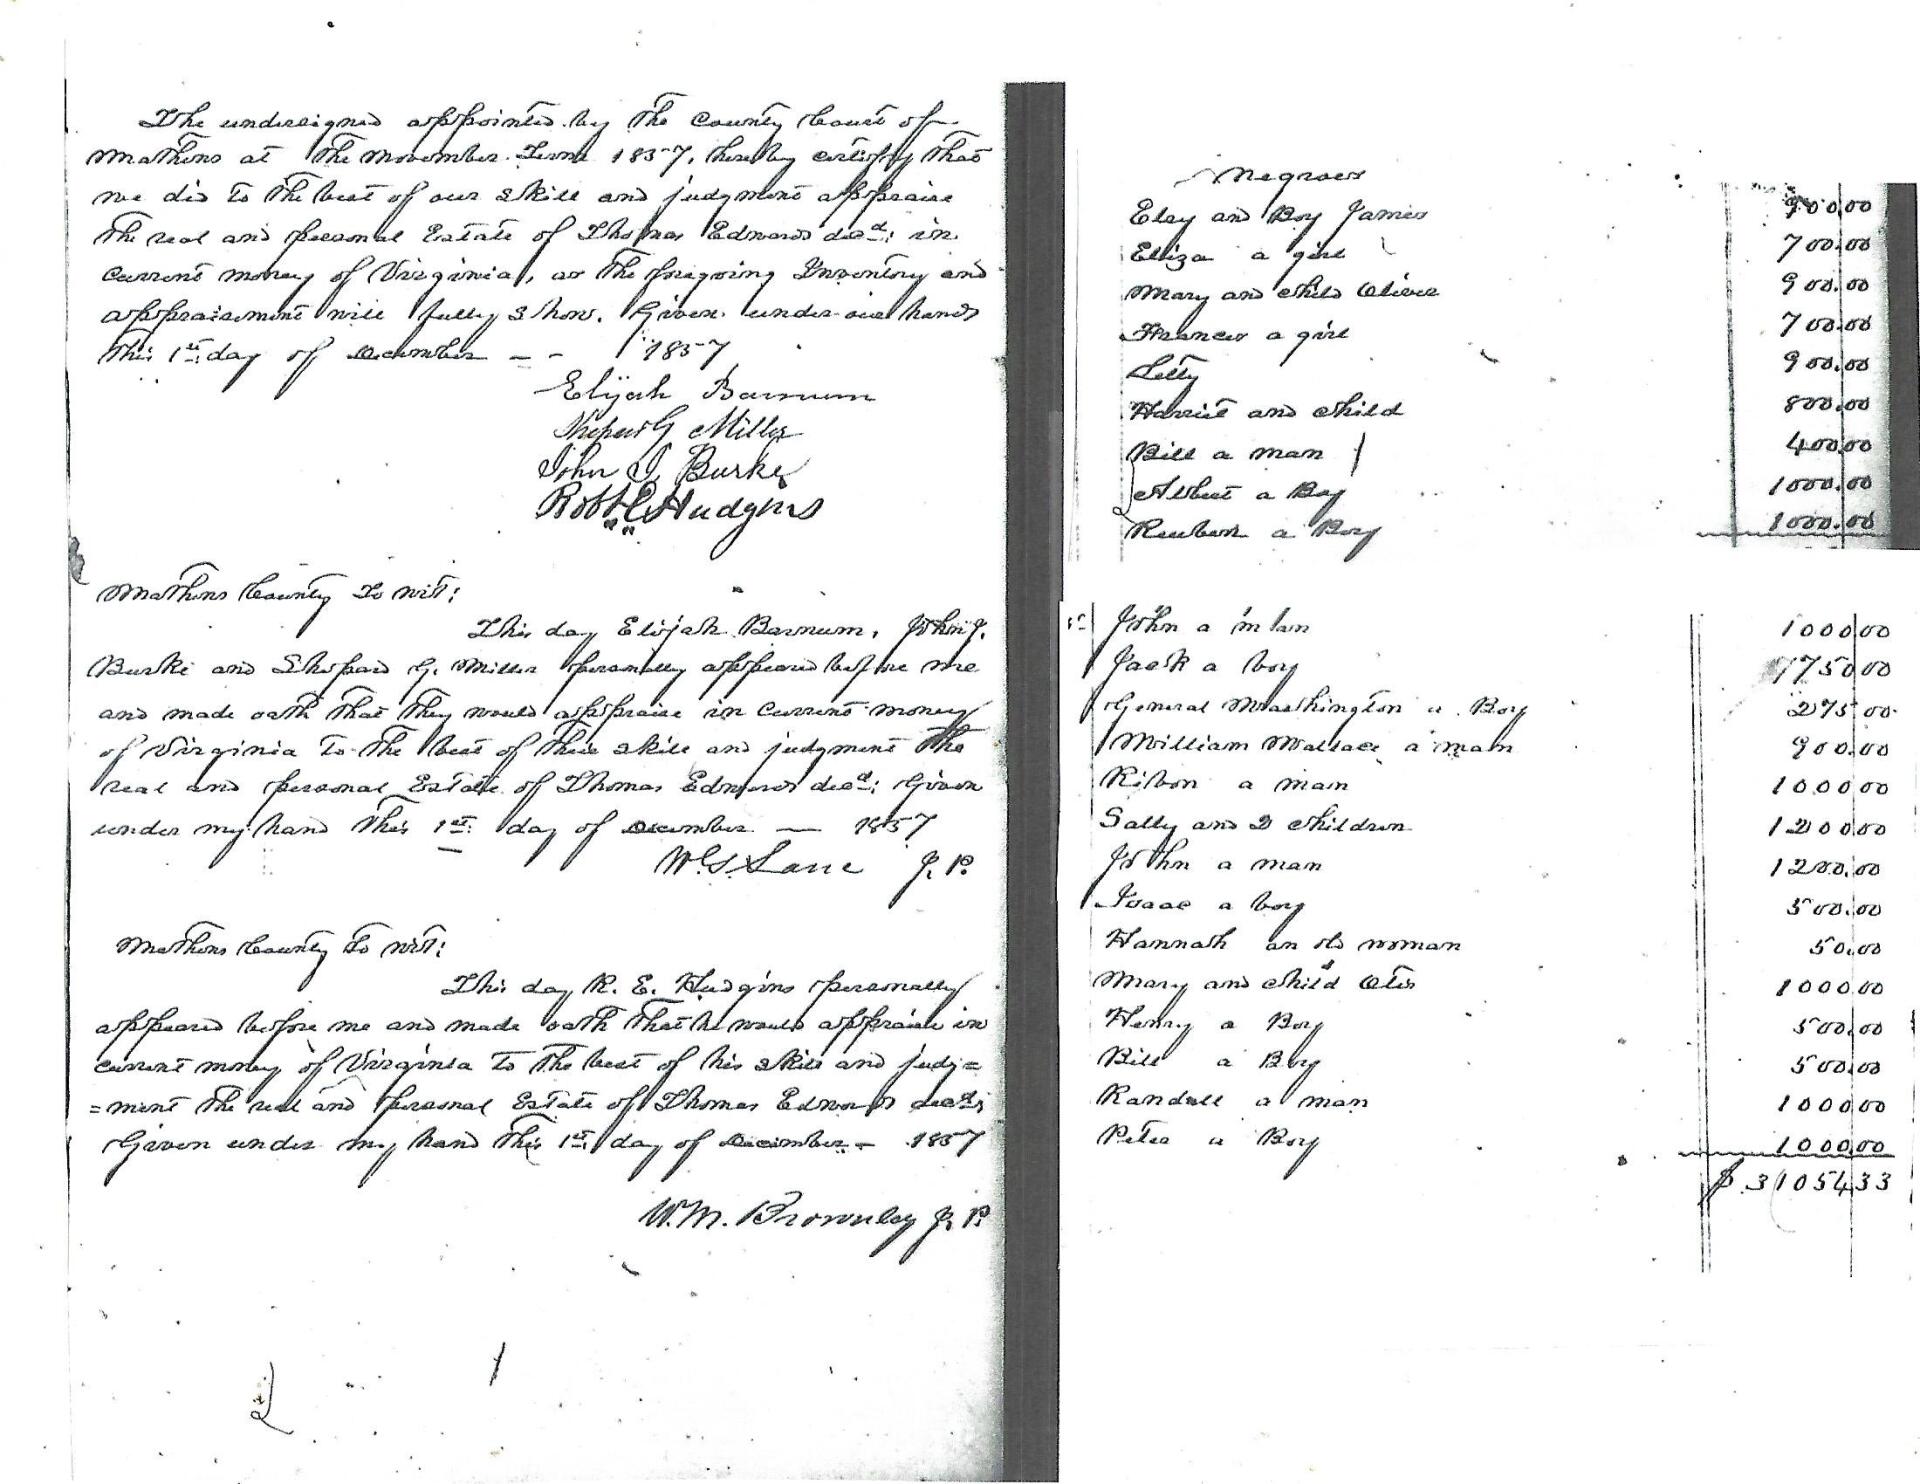 The undersigned appointed by the County Court of
Mathews at the November Term 1857, hereby certify that
we did to the best of our skill and judgment appraise
the real and personal Estate of Thomas Edwards decd: in
current money of Virginia, as the foregoing Inventory and
appraisement will fully show. Given under our hands
this 1st: day of December — - 1857
Elijah Barnum
G Miller
John J. Burke
Robt E Hudgins
Mathews County To wit:
This day Elijah Barnum, John J.
Burke and Shepard G. Miller personally appeared before me
and made oath that they would appraise in current money
of Virginia to the best of their skill and judgment the
real and personal Estate of Thomas Edwards decd: Given
under my hand this 1st: day of December — 1857
W. S. Lane J. P.
Mathews County To wit:
This day R. E. Hudgins personally
appeared before me and made oath that he would appraise in
current money of Virginia to the best of his skill and judg=
=ment the real and personal Estate of Thomas Edwards decd;
Given under my hand this 1st: day of December — 1857
W. M. Brownley J. P.
Negroes
Elsy and Boy James 900.00
Eliza a girl 700.00
Mary and child Oliver 900.00
Frances a girl 700.00
Letty 900.00
Harriet and child 800.00
Bill a man 400.00
Albert a Boy 1000.00
Reuben a Boy 1000.00
John a man 1000 00
Jack a boy 775 00
General Washington a Boy 275 00
William Wallace a man 900.00
a man 1000 00
Sally and 2 children 1200.00
John a man 1200.00
Isaac a boy 500.00
Hannah an old woman 50.00
Mary and child 1000.00
Henry a Boy 500.00
Bill a Boy 500.00
Randall a man 1000.00
Peter a Boy 1000.00
$.31054 33